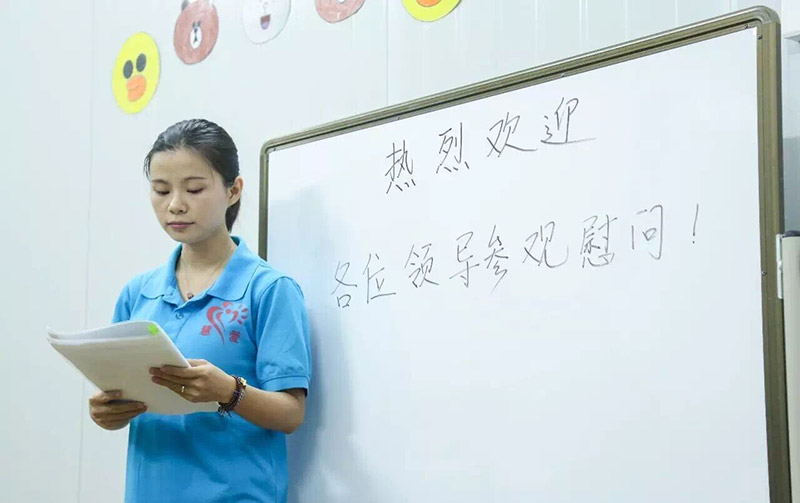 热烈欢迎
各位领导参观慰问！
慈爱